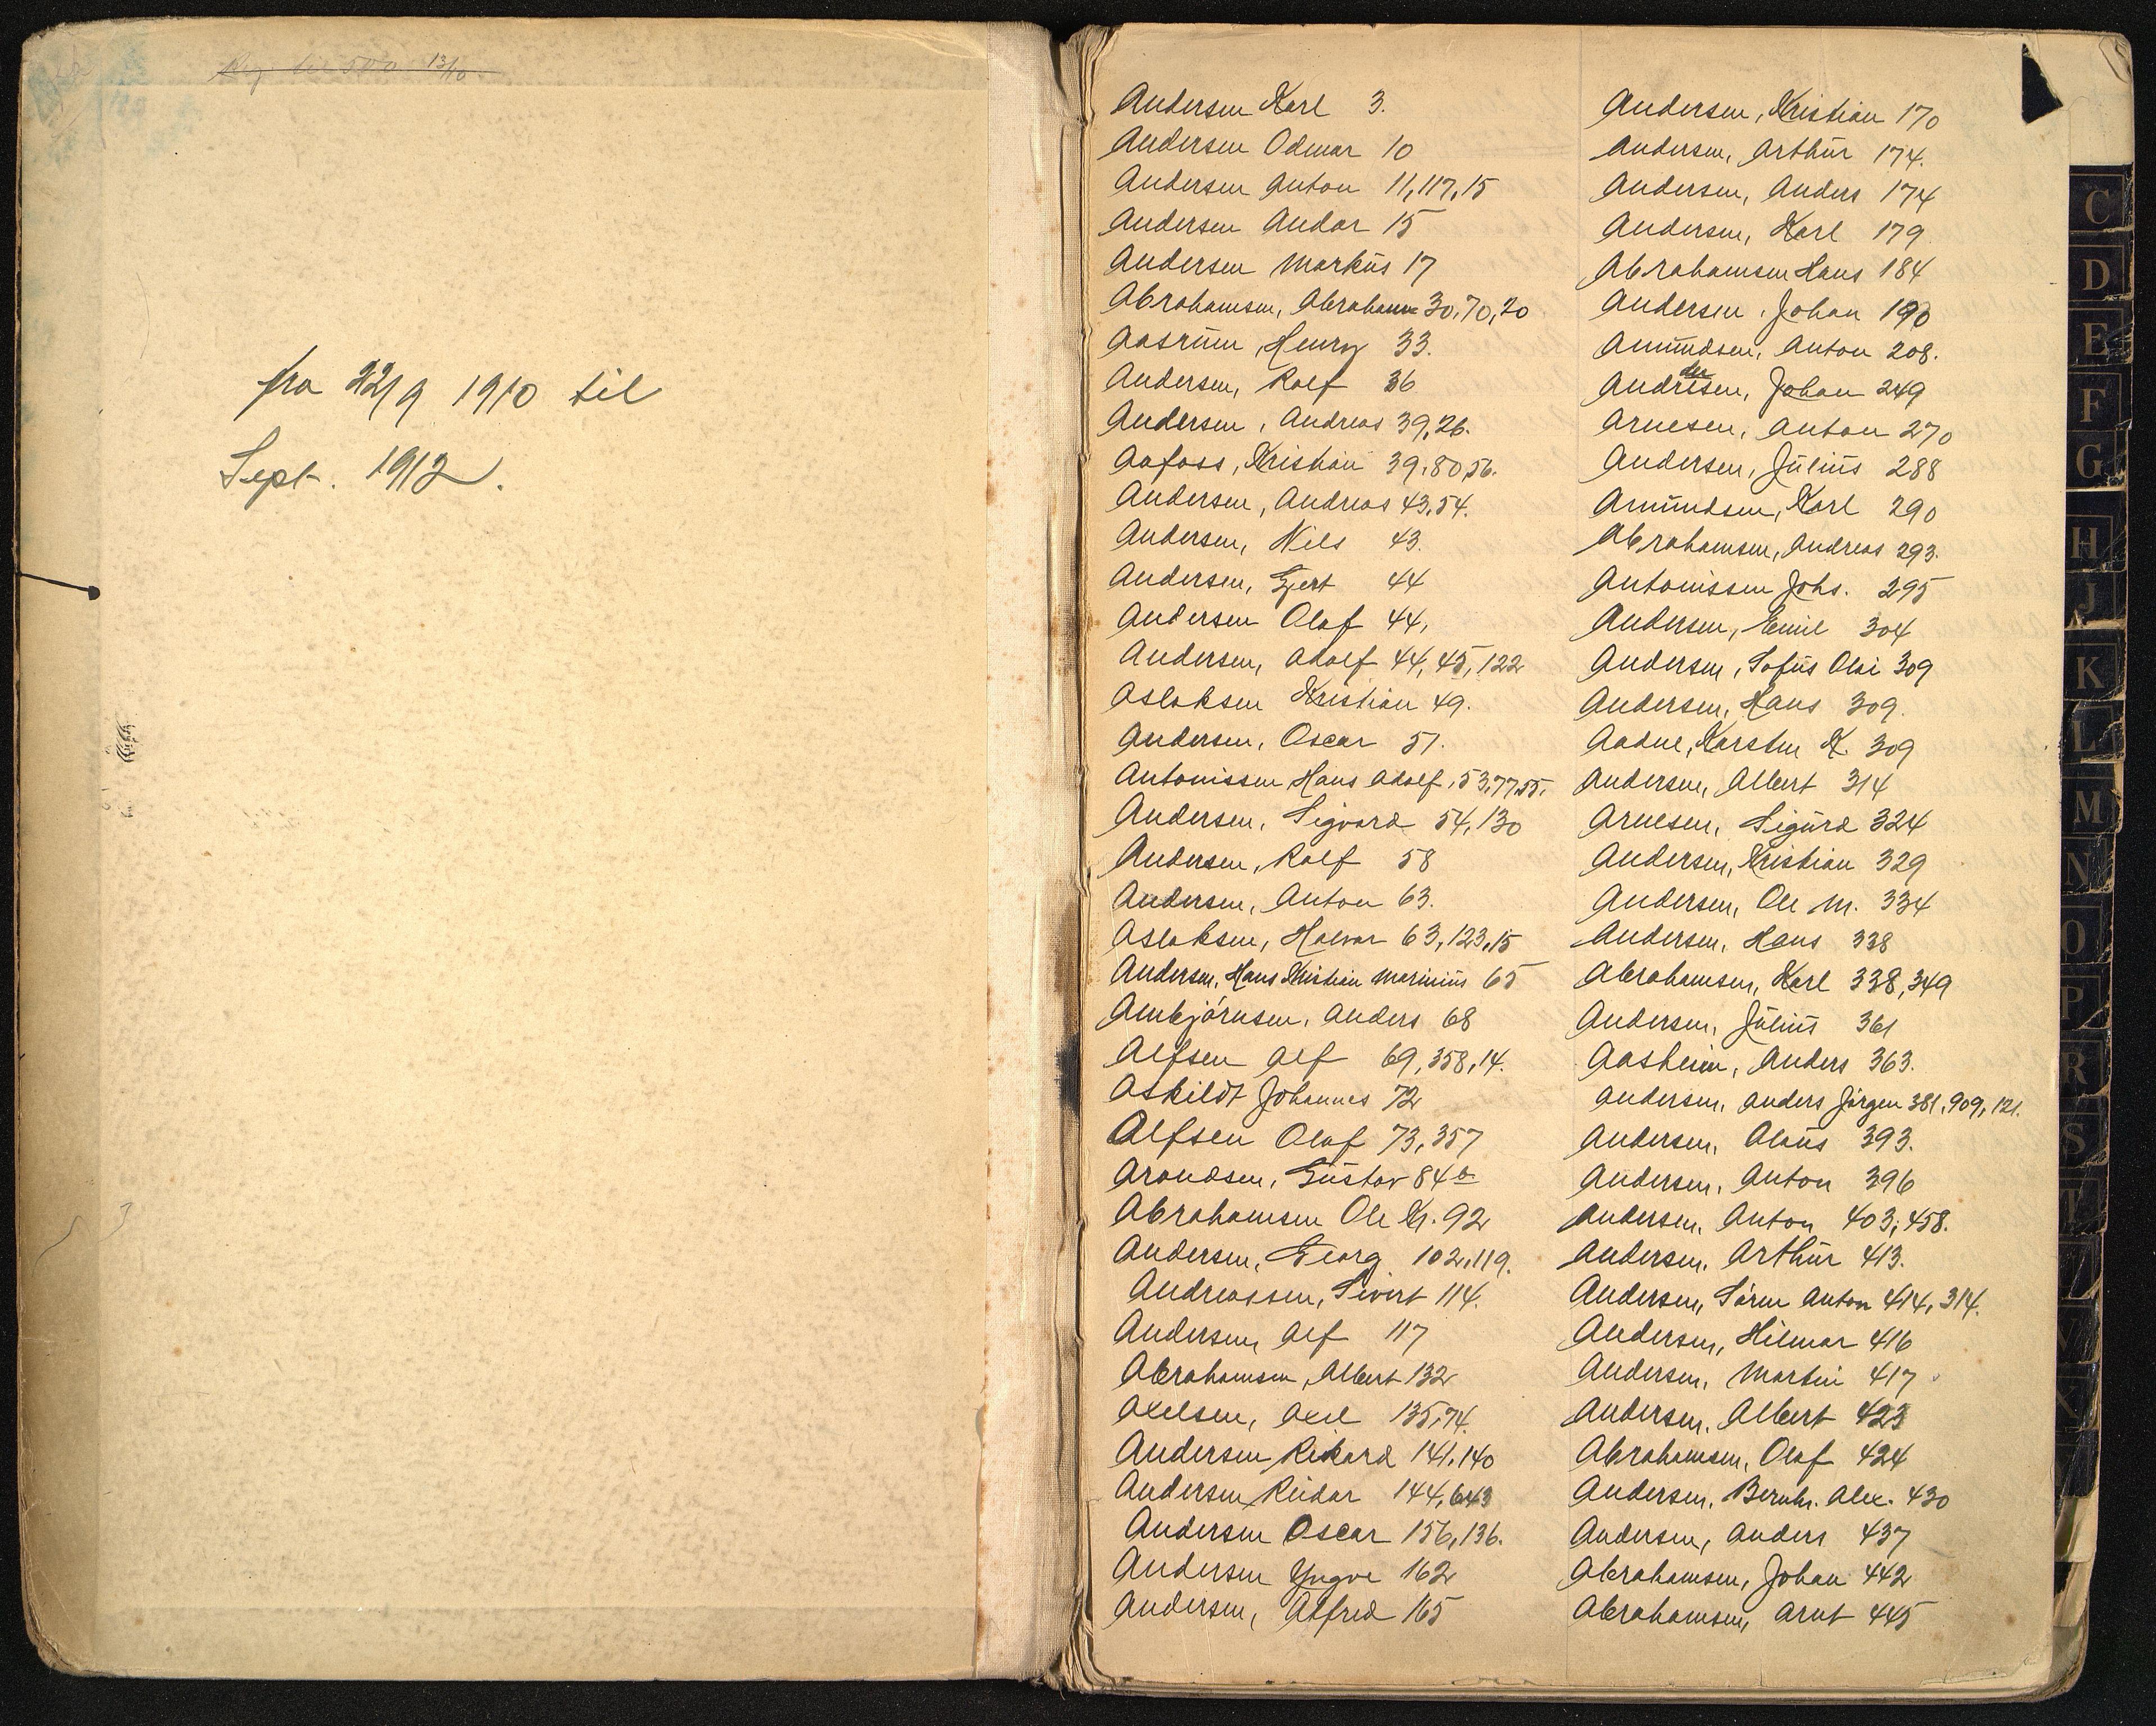 Reg. til 500 13/10
fra 22/9 1910 til
Sept. 1912.
Andersen Karl 3.
Andersen Odmar 10
Andersen Anton 11,117,15
Andersen Andor 15
Andersen Markus 17
Abrahamsen, Abraham 30,70,20
Aasrum, Henry 33.
Andersen, Rolf 36
Andersen, Andreas 39,26.
Aafoss, Kristian 39,80,56.
Andersen, Andreas 43,54.
Andersen, Nils 43.
Andersen, Gjert 44
Andersen Olaf 44,
Andersen, Adolf 44,45,122
Aslaksen Kristian 49.
Andersen, Oscar 51.
Antonissen Hans Adolf, 53,77,55.
Andersen, Sigvard 54,130
Andersen, Rolf 58
Andersen, Anton 63.
Aslaksen, Halvor 63,123,15
Andersen, Hans Kristian Marinius 65
Ambjörnsen, Anders 68
Alfsen Alf 69,358,14.
Askildt Johannes 72
Alfsen Olaf 73,357
Arondsen, Gustav 84a
Abrahamsen Ole Kr. 92
Andersen, Georg 102,119.
Andreassen, Sivert 114.
Andersen, Alf 117
Abrahamsen, Albert 132
Axelsen, Axel 135,74.
Andersen Rikard 141,140
Andersen Reidar 144,643
Andersen Oscar 156,136.
Andersen Yngve 162
Andersen, Alfred 165
Andersen, Kristian 170
Andersen, Arthur 174.
Andersen, Anders 174
Andersen, Karl 179
Abrahamsen Hans 184
Andersen, Johan 190
Amundsen, Anton 208.
der
Andresen, Johan 249
Arnesen, Anton 270
Andersen, Julius 288
Amundsen, Karl 290
Abrahamsen, Andreas 293.
Antonissen Johs. 295
Andersen, Emil 304
Andersen, Sofus Olai 309
Andersen, Hans 309.
Aadne, Karsten K. 309
Andersen, Albert 314
Arnesen, Sigurd 324
Andersen, Kristian 329
Andersen, Ole M. 334
Andersen, Hans 338
Abrahamsen, Karl 338,349
Andersen, Julius 361
Aasheim, Anders 363.
Andersen, Anders Jörgen 381,909,121.
Andersen, Olaus 393.
Andersen, Anton 396
Andersen, Anton 403,458.
Andersen, Arthur 413.
Andersen, Sören Anton 414,314.
Andersen, Hilmar 416
Andersen, Martin 417
Andersen, Albert 423
Abrahamsen, Olaf 424
Andersen, Bernh. Alex. 430
Andersen, Anders 437
Abrahamsen, Johan 442
Abrahamsen, Arnt 445
C
D
E
F
G
H
J
K
L
M
N
O
P
R
S
T
V